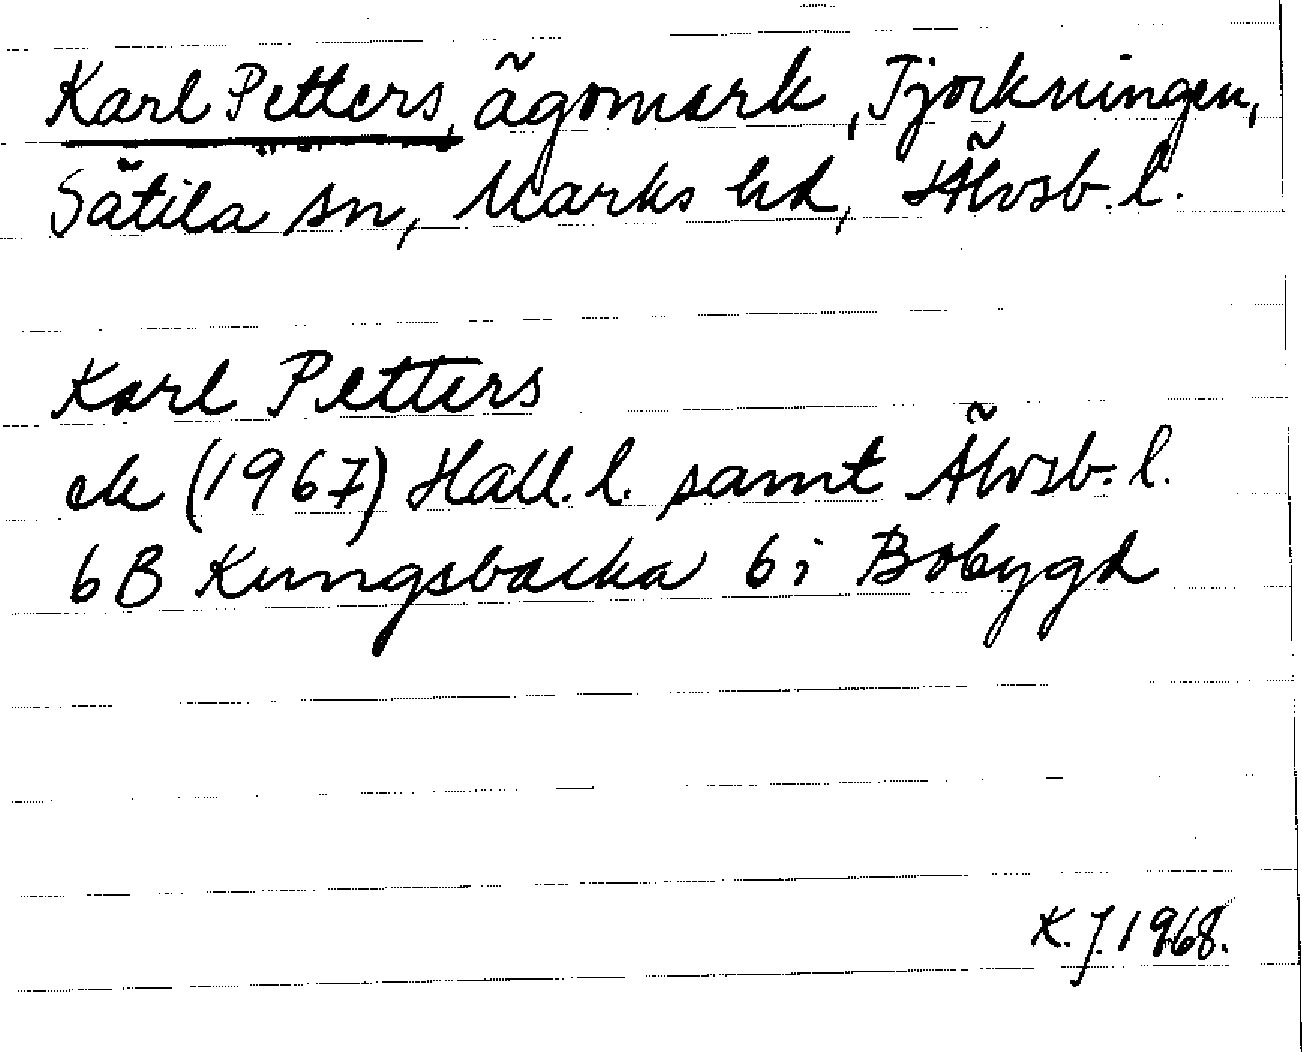 Karl Petters, ägomark, Tjorkningen,
Sätila sn, Marks hd, Älvsb. l.
Karl Petters
ek (1967) Hall. l. samt Älvsb. l.
6B Kungsbacka 6i Bobygd
K. J. 1968.